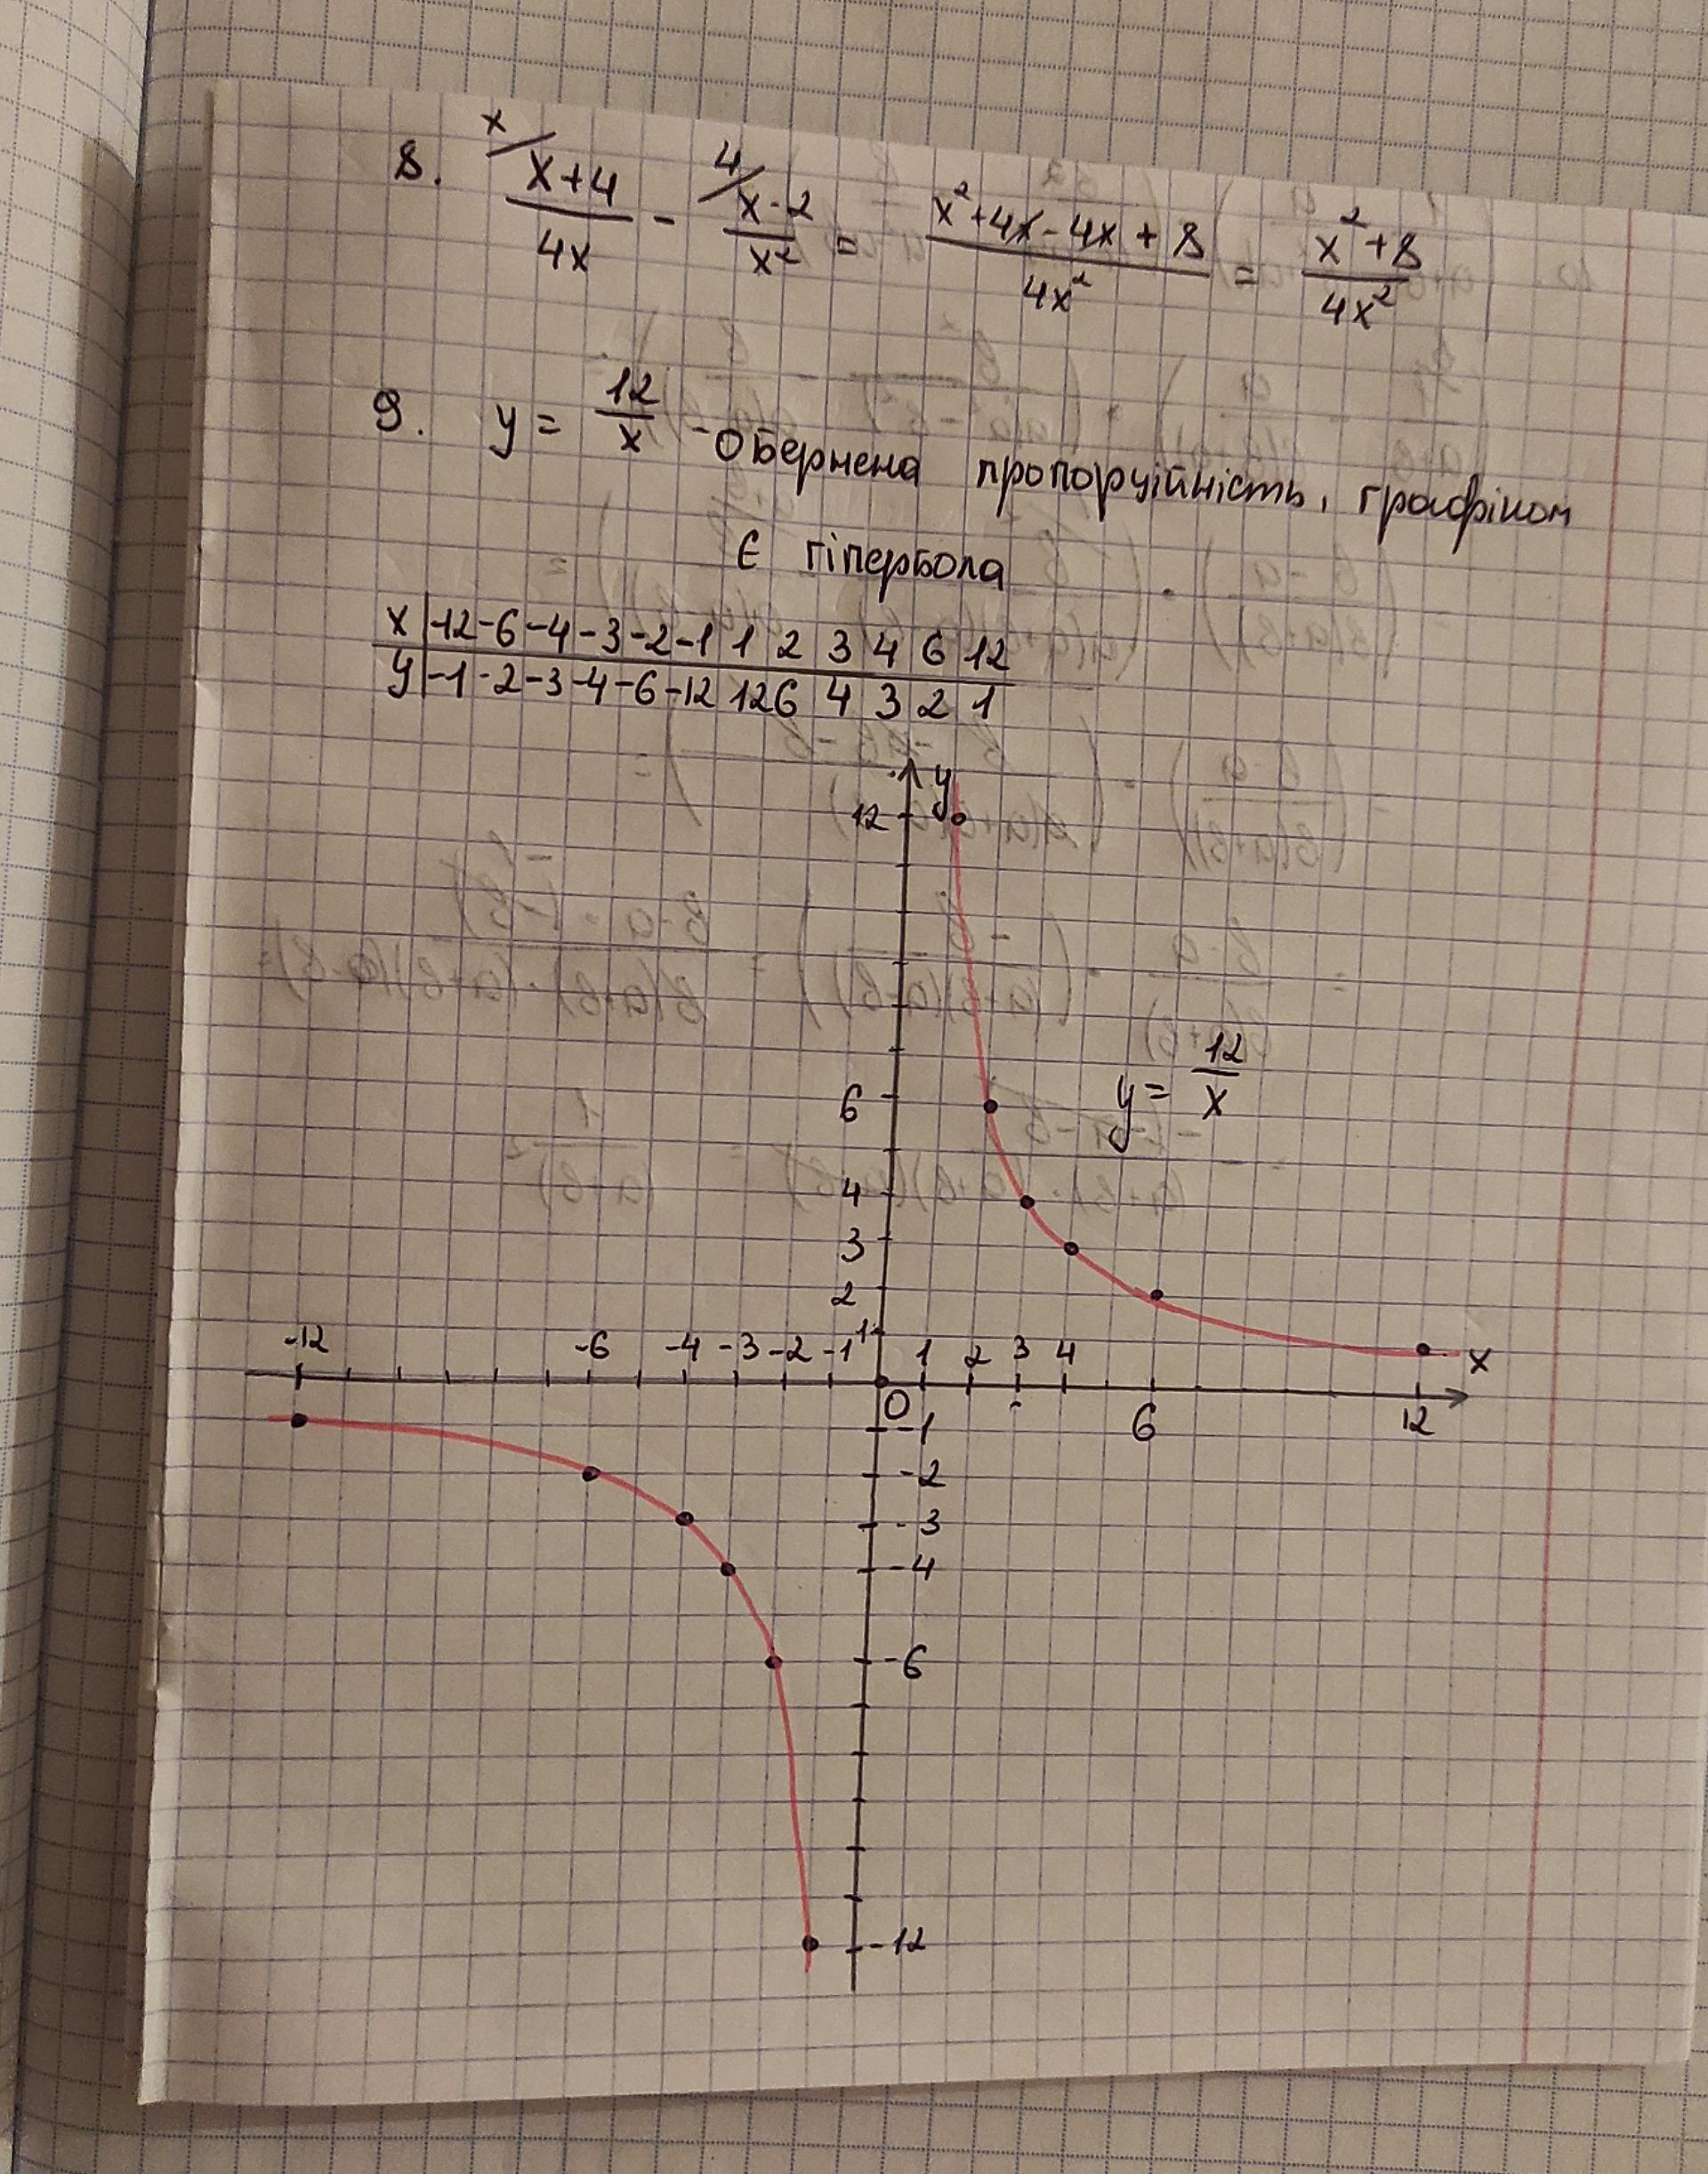 8. x/ x+4/4x - 4/ x-2/x² = x²+4x-4x+8/4x² = x²+8/4x²
9. y = 12/x - Обернена пропорційність, графіком
є гіпербола
x | -12 -6 -4 -3 -2 -1 1 2 3 4 6 12
y | -1 -2 -3 -4 -6 -12 12 6 4 3 2 1
y
12
y = 12/x
6
4
3
2
1
-12 -6 -4 -3 -2 -1 1 2 3 4 x
0 6 12
-1
-2
-3
-4
-6
-12